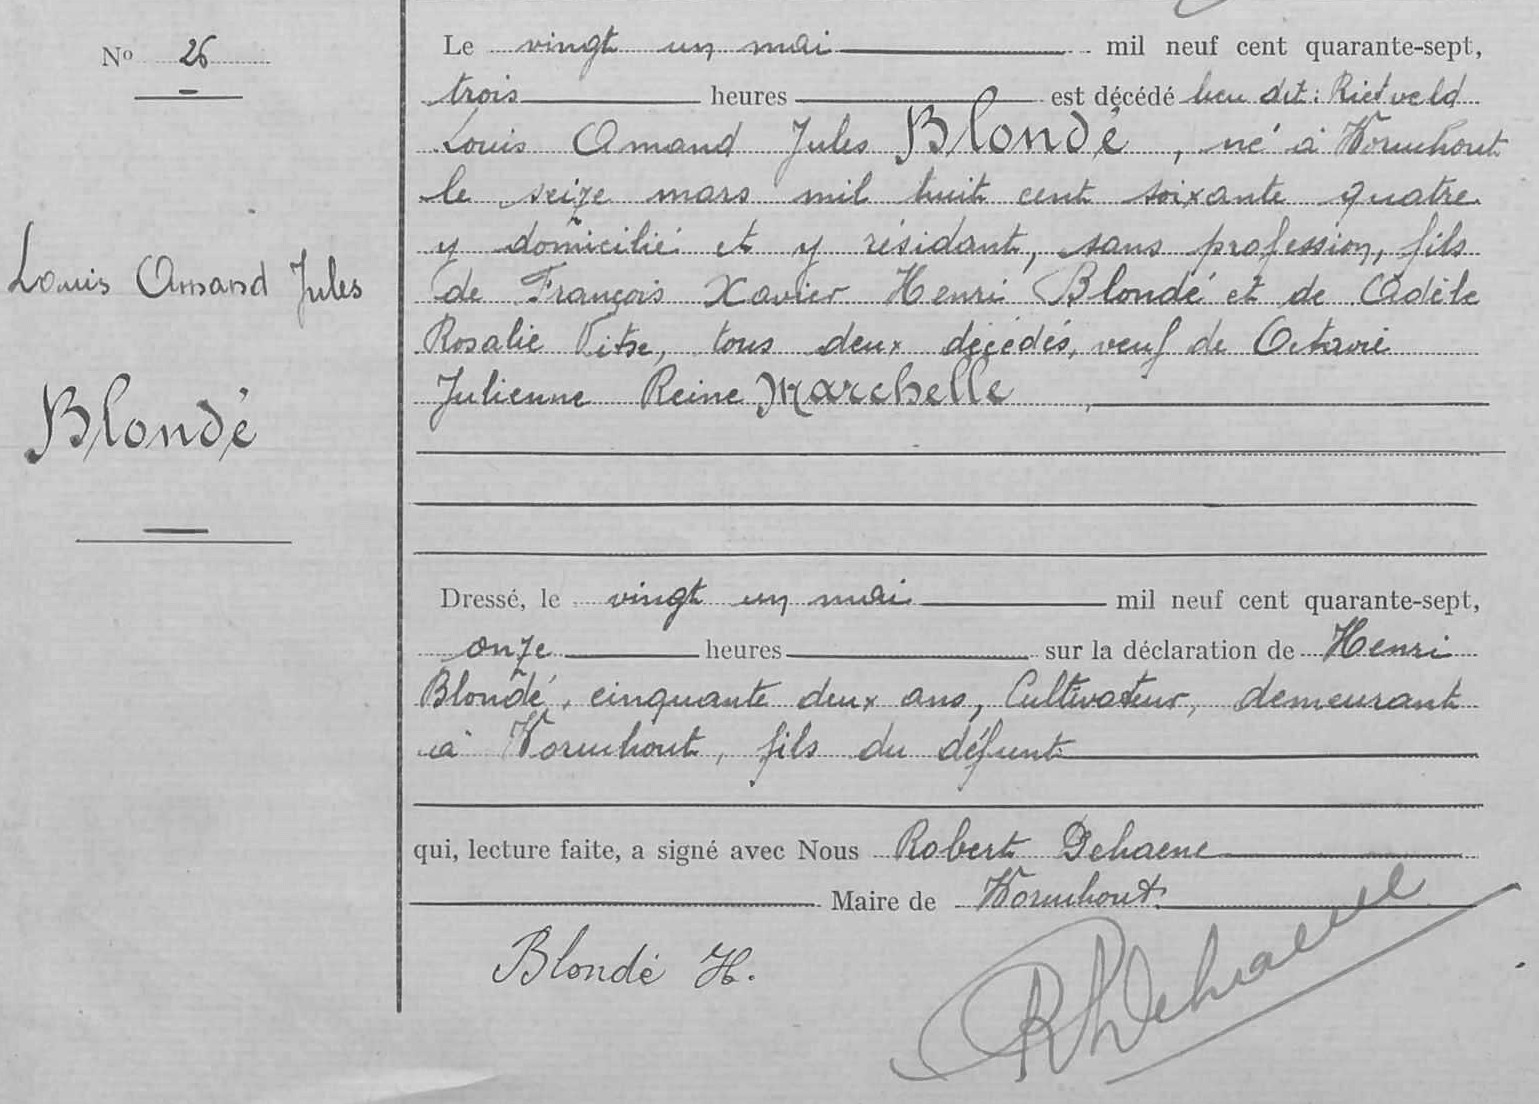 No 26
Louis Amand Jules
Blondé
Le vingt un mai mil neuf cent quarante-sept,
trois heures est décédé lieu dit : Rietveld
Louis Amand Jules Blondé, né à Wormhout
le seize mars mil huit cent soixante quatre
y domicilié et y résidant, sans profession, fils
de François Xavier Henri Blondé et de Adèle
Rosalie Vitse, tous deux décédés, veuf de Octavie
Julienne Reine Marchelle,
Dressé, le vingt un mai mil neuf cent quarante-sept,
onze heures sur la déclaration de Henri
Blondé, cinquante deux ans, Cultivateur, demeurant
à Wormhout, fils du défunt
qui, lecture faite, a signé avec Nous Robert Dehaene
Maire de Wormhout.
Blondé H.
RDehaene